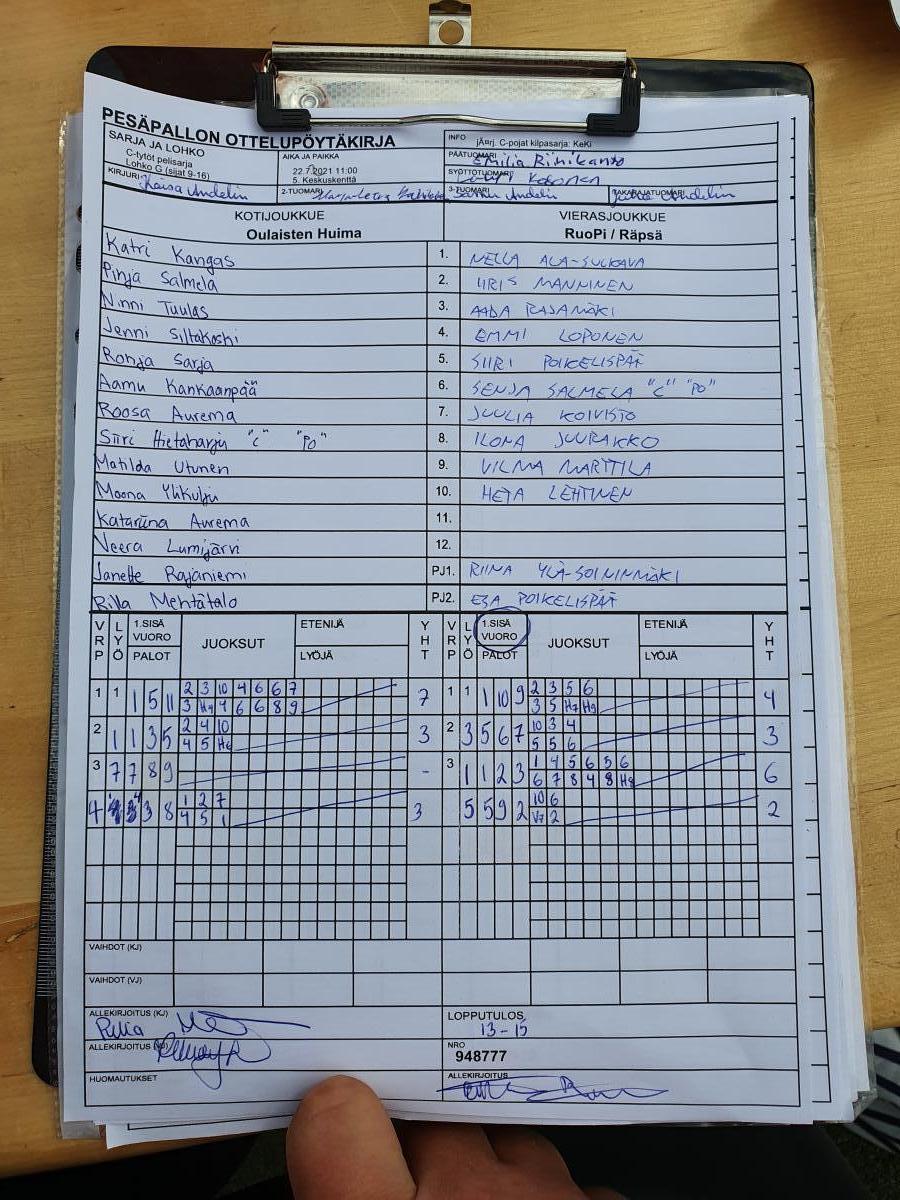 PESÄPALLON OTTELUPÖYTÄKIRJA
SARJA JA LOHKO
C-tytöt pelisarja
Lohko G (sijat 9-16)
AIKA JA PAIKKA
22.7.2021 11:00
5. Keskuskenttä
INFO
jÃ¤rj. C-pojat kilpasarja: KeKi
PÄÄTUOMARI
SYÖTTÖTUOMARI
KIRJURI Kaisa Andelin
2-TUOMARI
3-TUOMARI Sanni Andelin
TAKARAJATUOMARI Juha Andelin
KOTIJOUKKUE
Oulaisten Huima
VIERASJOUKKUE
RuoPi / Räpsä
Katri Kangas 1. NELLA ALA-SULKAVA
Pinja Salmela 2. IIRIS MANNINEN
Ninni Tuulas 3. AADA RAJAMÄKI
Jenni Siltakoski 4. EMMI LOPONEN
Ronja Sarja 5. SIIRI POIKELISPÄÄ
Aamu Kankaanpää 6. SENJA SALMELA "C" "PO"
Roosa Aurema 7. JUULIA KOIVISTO
Siiri Hietaharju "C" "PO" 8. ILONA JUURAKKO
Matilda Utunen 9. VILMA MARTTILA
Moona Ylikulju 10. HETA LEHTINEN
Katariina Aurema 11.
Veera Lumijärvi 12.
Janette Rajaniemi PJ1. RIINA YLÄ-SOININMÄKI
Rilla Mehtätalo PJ2. ESA POIKELISPÄÄ
VRP LYÖ 1.SISÄ VUORO PALOT JUOKSUT ETENIJÄ LYÖJÄ YHT VRP LYÖ 1.SISÄ VUORO PALOT JUOKSUT ETENIJÄ LYÖJÄ YHT
1 1 1 5 11 2 3 10 4 6 6 7 7 1 1 1 10 9 2 3 5 6 4
3 H9 4 6 6 8 9 3 5 H7 H9
2 1 1 3 5 2 4 10 3 2 3 5 6 7 10 3 4 3
4 5 H6 5 5 6
3 7 7 8 9 - 3 1 1 2 3 1 4 5 6 5 6 6
6 7 8 4 8 H9
4 3 8 1 2 7 3 5 5 9 2 10 6 2
4 5 1 V7 2
VAIHDOT (KJ)
VAIHDOT (VJ)
ALLEKIRJOITUS (KJ)
LOPPUTULOS
13-15
ALLEKIRJOITUS (VJ)
NRO
948777
HUOMAUTUKSET
ALLEKIRJOITUS